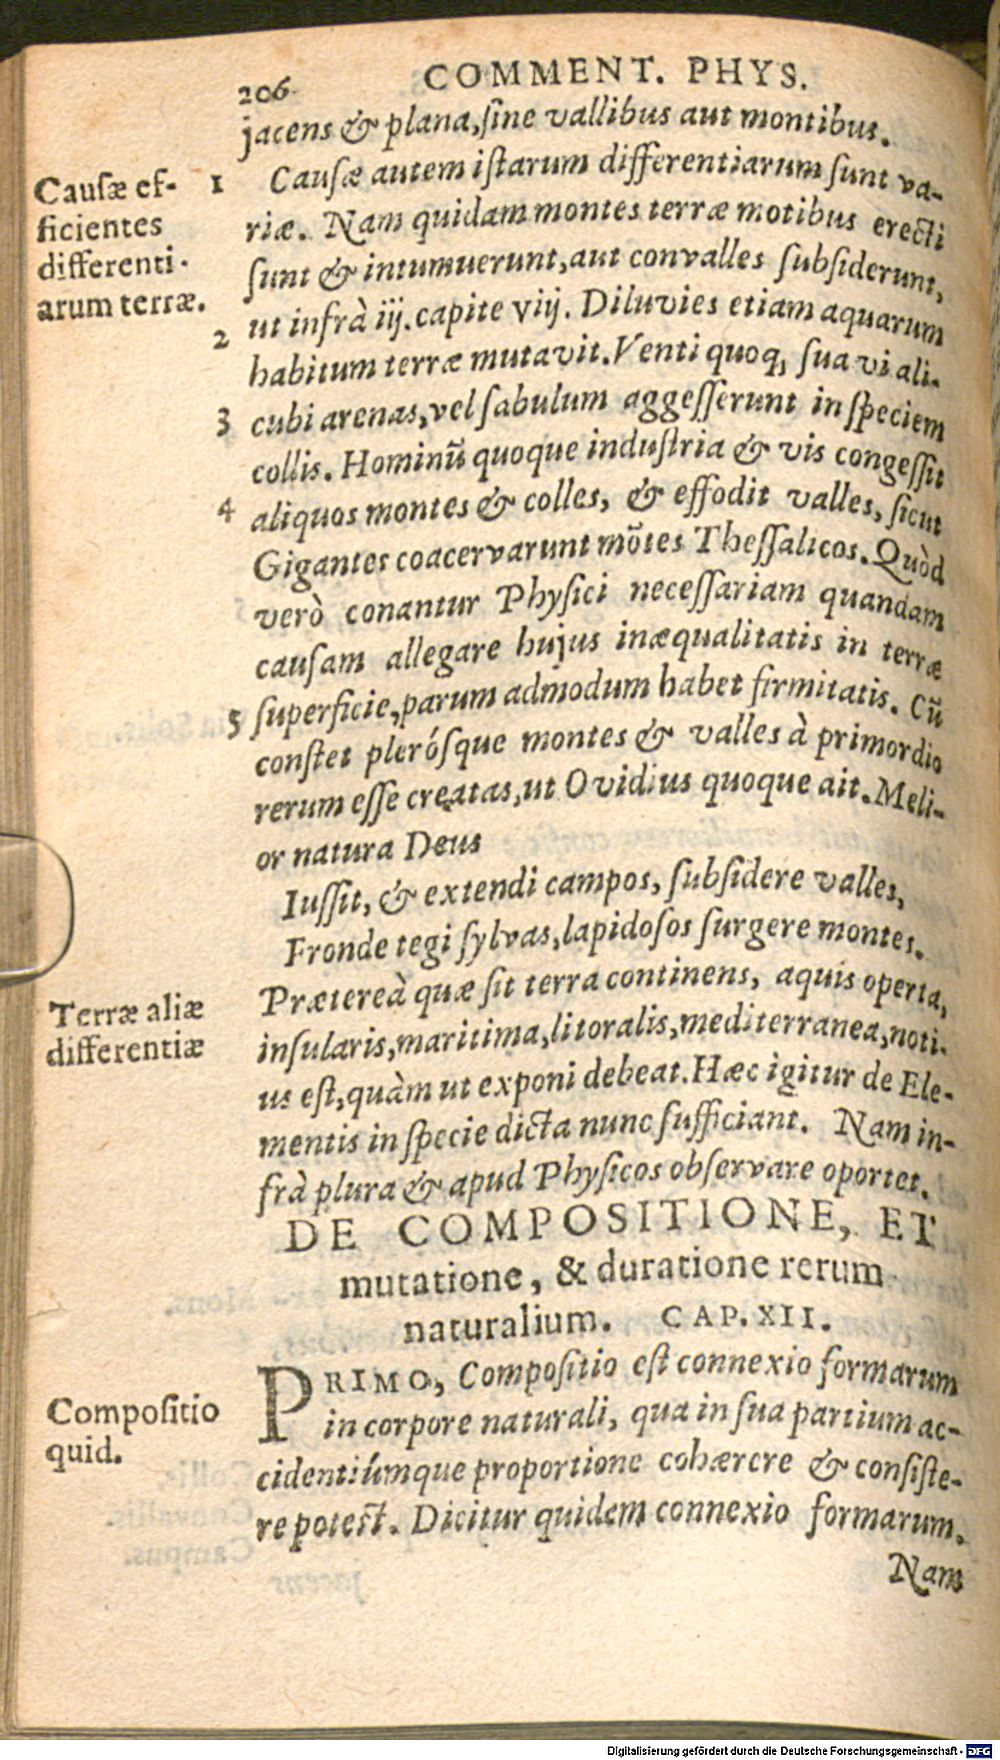 206 COMMENT. PHYS.
jacens & plana, sine vallibus aut montibus.
Causæ ef-
ficientes
differenti-
arum terræ.
1 Causæ autem istarum differentiarum sunt va-
riæ. Nam quidam montes terræ motibus erecti
sunt & intumuerunt, aut convalles subsiderunt,
ut infrà iij. capite viij. Diluvies etiam aquarum
2
habitum terræ mutavit. Venti quoq, sua vi ali-
3 cubi arenas, vel sabulum aggesserunt in speciem
collis. Hominũ quoque industria & vis congessit
4 aliquos montes & colles, & effodit valles, sicut
Gigantes coacervarunt mõtes Thessalicos. Quòd
verò conantur Physici necessariam quandam
causam allegare hujus inæqualitatis in terræ
5 superficie, parum admodum habet firmitatis. Cũ
constet plerósque montes & valles à primordio
rerum esse creatas, ut Ovidius quoque ait. Meli-
or natura Deus
Iussit, & extendi campos, subsidere valles,
Fronde tegi sylvas, lapidosos surgere montes.
Terræ aliæ
differentiæ
Prætereà quæ sit terra continens, aquis operta,
insularis, maritima, litoralis, mediterranea, noti-
us est, quàm ut exponi debeat. Hæc igitur de Ele-
mentis in specie dicta nunc sufficiant. Nam in-
frà plura & apud Physicos observare oportet.
DE COMPOSITIONE, ET
mutatione, & duratione rerum
naturalium. CAP. XII.
Compositio
quid.
PRIMO, Compositio est connexio formarum
in corpore naturali, qua in sua partium ac-
cidentiúmque proportione cohærere & consiste-
re potest. Dicitur quidem connexio formarum.
Nam
Digitalisierung gefördert durch die Deutsche Forschungsgemeinschaft - DFG